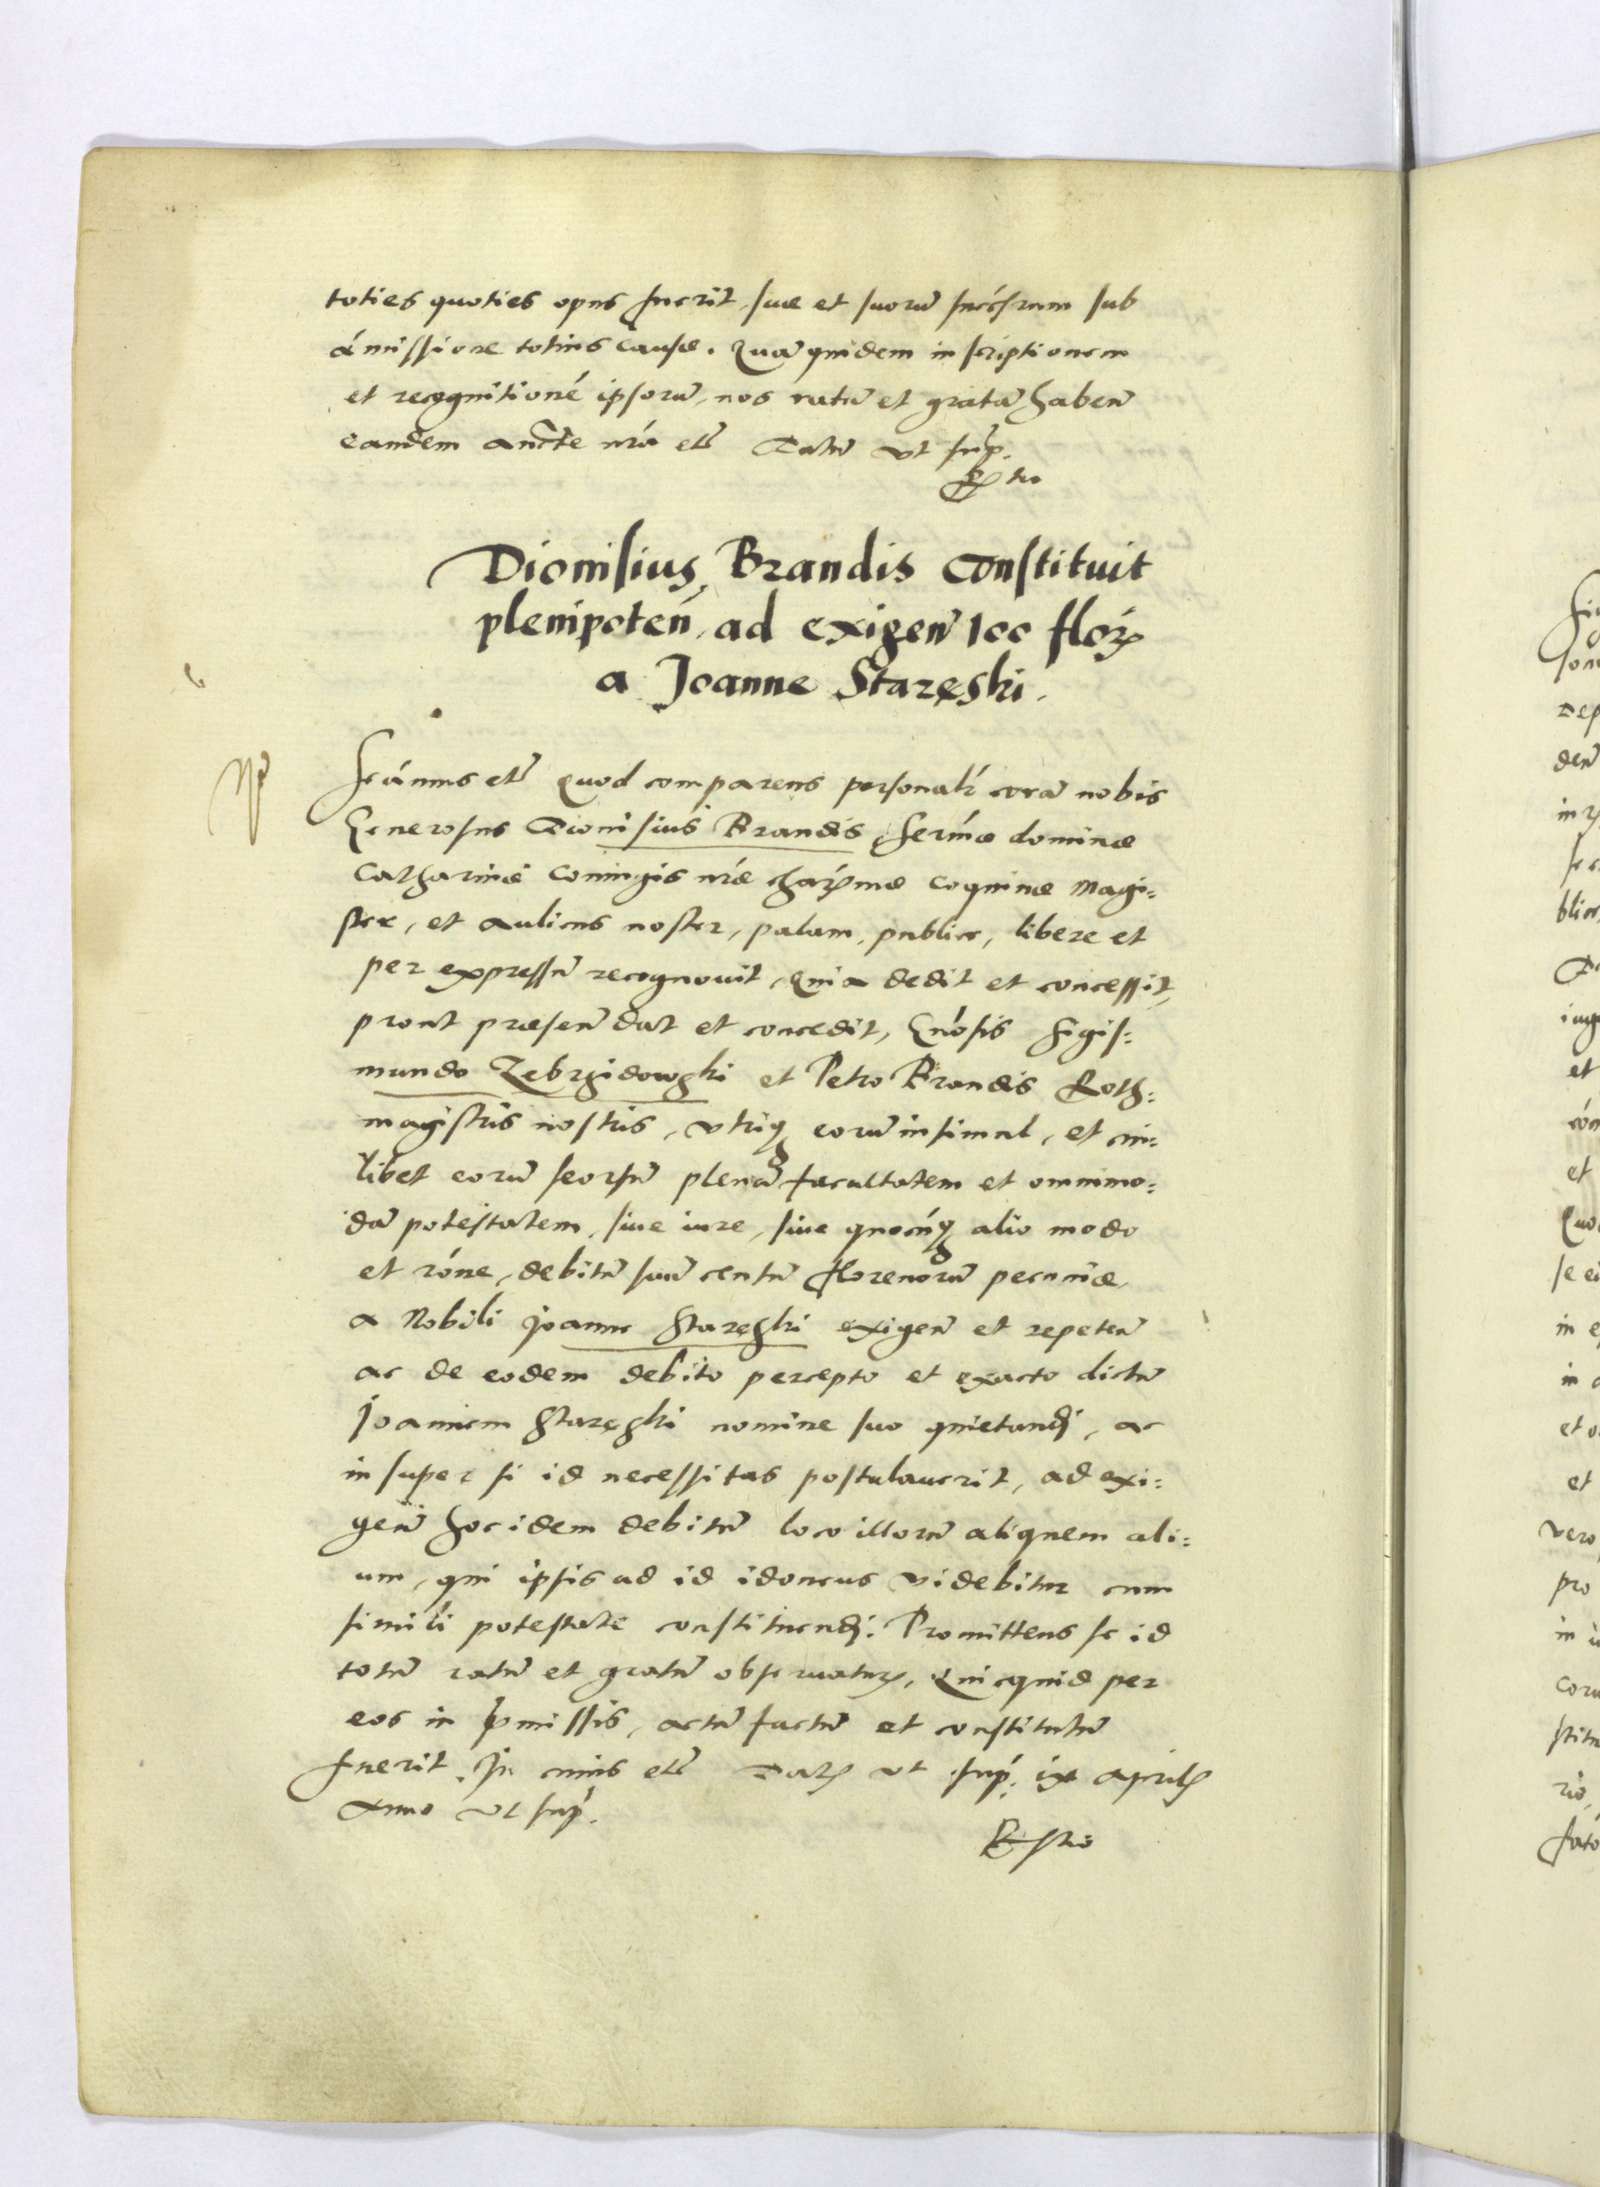 toties quoties opus fuerit, suæ et suorũ succ̃rum sub
ámissione totius causæ. Quã quidem inscriptionem
et recognitioné ipsorũ, nos ratã et gratã habeñ
eandem aucte nrá etc̃ Datũ vt sup̃.
Dionisius Brandis Constituit
plenipoteń, ad exigeñ 100 floꝝ
a Joanne Staręski.
Nõ
Scámus etc̃ Quod comparens personalr̃ corã nobis
Generosus Dionisius Brandis, Sermæ dominæ
Catharinæ Coniugis nræ charmæ coquinæ Magi=
ster, et aulicus noster, palam, publice, libere et
per expressũ recognouit, Quia dedit et concessit,
prout præseñ dat et concedit, Gnosis Sigis=
mundo Zebrzidowski et Petro Brandis Roth=
magistris nostris, vtriqꝫ eorũ insimul, et cui=
libet eorũ seorsũ plenã facultatem et omnimo=
dã potestatem, siue iure, siue quocũqꝫ alio modo
et róne, debitũ suũ centũ florenorũ pecuniæ
a Nobili Joanne Staręski exigeñ et repeteñ
ac de eodem debito percepto et exacto dictũ
Joannem Staręski nomine suo quietandi, ac
insuper si id necessitas postulauerit, ad exi=
geñ hoc idem debitũ loco illorũ aliquem ali=
um, qui ipsis ad id idoneus videbitur cum
simili potestate constituendi. Promittens se id
totũ ratũ et gratũ obseruaturꝫ, Quicquid per
eos in p̃missis, actũ factũ et constitutũ
fuerit. In cuius etc̃ Datꝫ vt sup̃. ix Aprilꝫ
Anno vt sup̃.